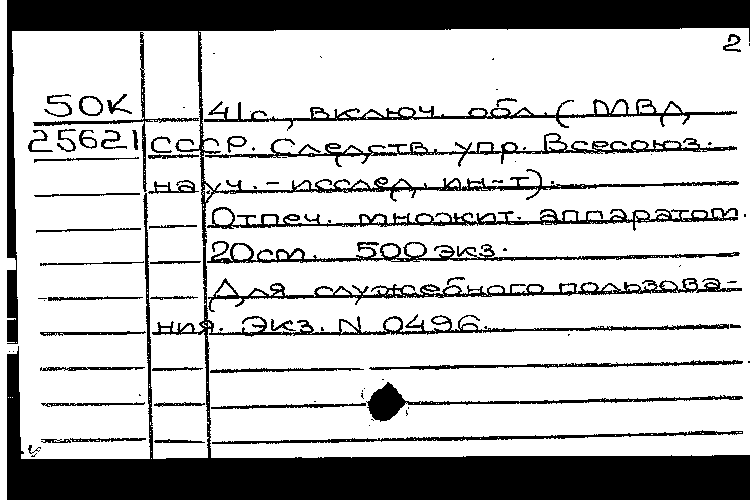 2
50К 41с., включ. обл. (МВД
25621 СССР. Следств. упр. Всесоюз.
науч.-исслед. ин-т).
Отпеч. множит. аппаратом.
20см. 500 экз.
Для служебного пользова-
ния. Экз. N 0496.